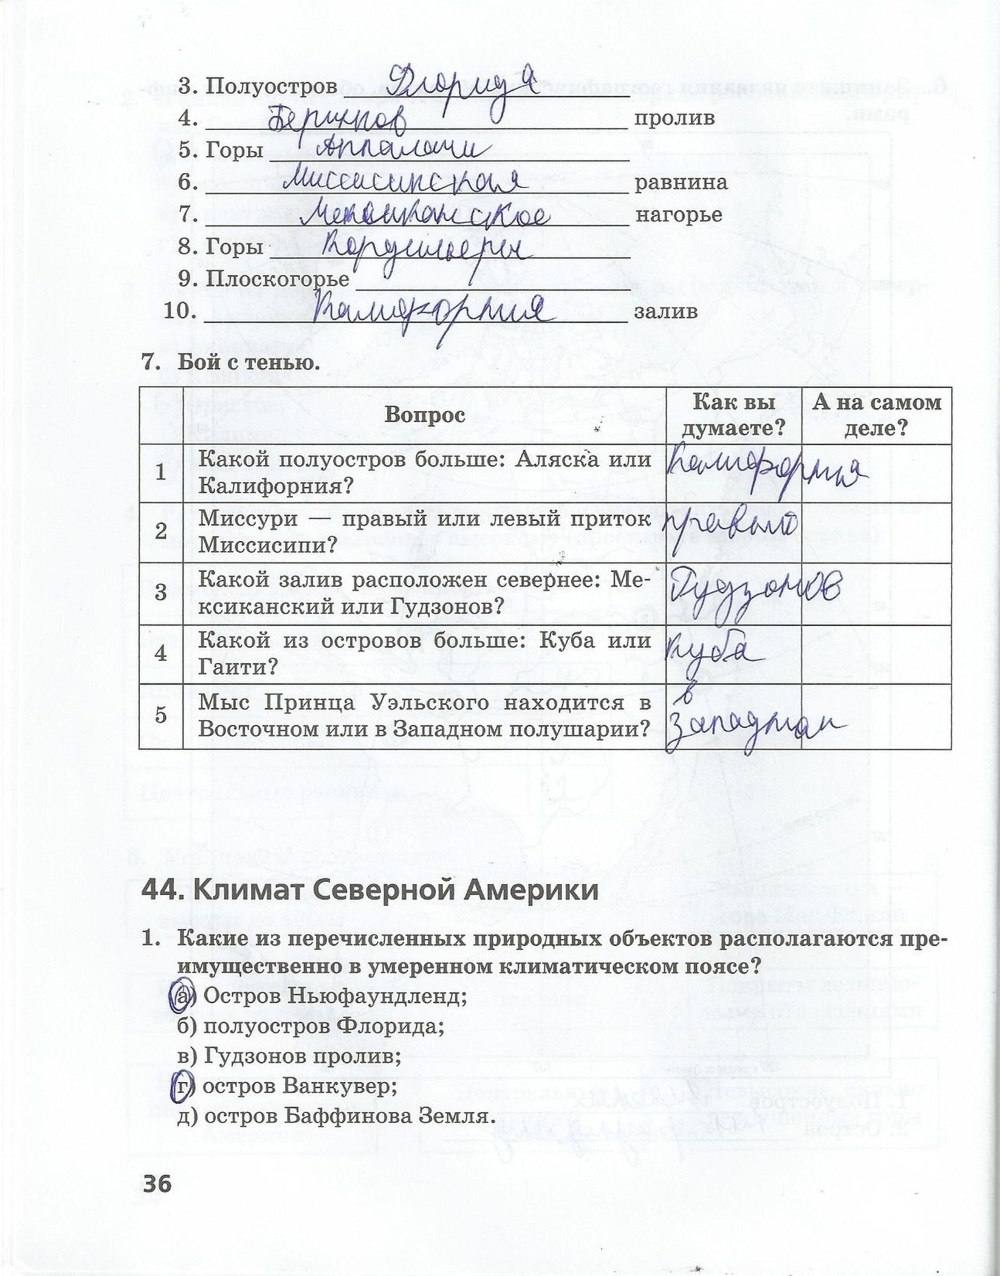 3. Полуостров Флорида
4. Берингов пролив
5. Горы Аппалачи
6. Миссисипская равнина
7. Мексиканское нагорье
8. Горы Кордильеры
9. Плоскогорье
10. Калифорния залив
7. Бой с тенью.
Вопрос
Как вы думаете?
А на самом деле?
1
Какой полуостров больше: Аляска или
Калифорния?
Калифорния
2
Миссури — правый или левый приток
Миссисипи?
правый
3
Какой залив расположен севернее: Ме-
ксиканский или Гудзонов?
Гудзонов
4
Какой из островов больше: Куба или
Гаити?
Куба
5
Мыс Принца Уэльского находится в
Восточном или в Западном полушарии?
в
Западном
44. Климат Северной Америки
1. Какие из перечисленных природных объектов располагаются пре-
имущественно в умеренном климатическом поясе?
а) Остров Ньюфаундленд;
б) полуостров Флорида;
в) Гудзонов пролив;
г) остров Ванкувер;
д) остров Баффинова Земля.
36